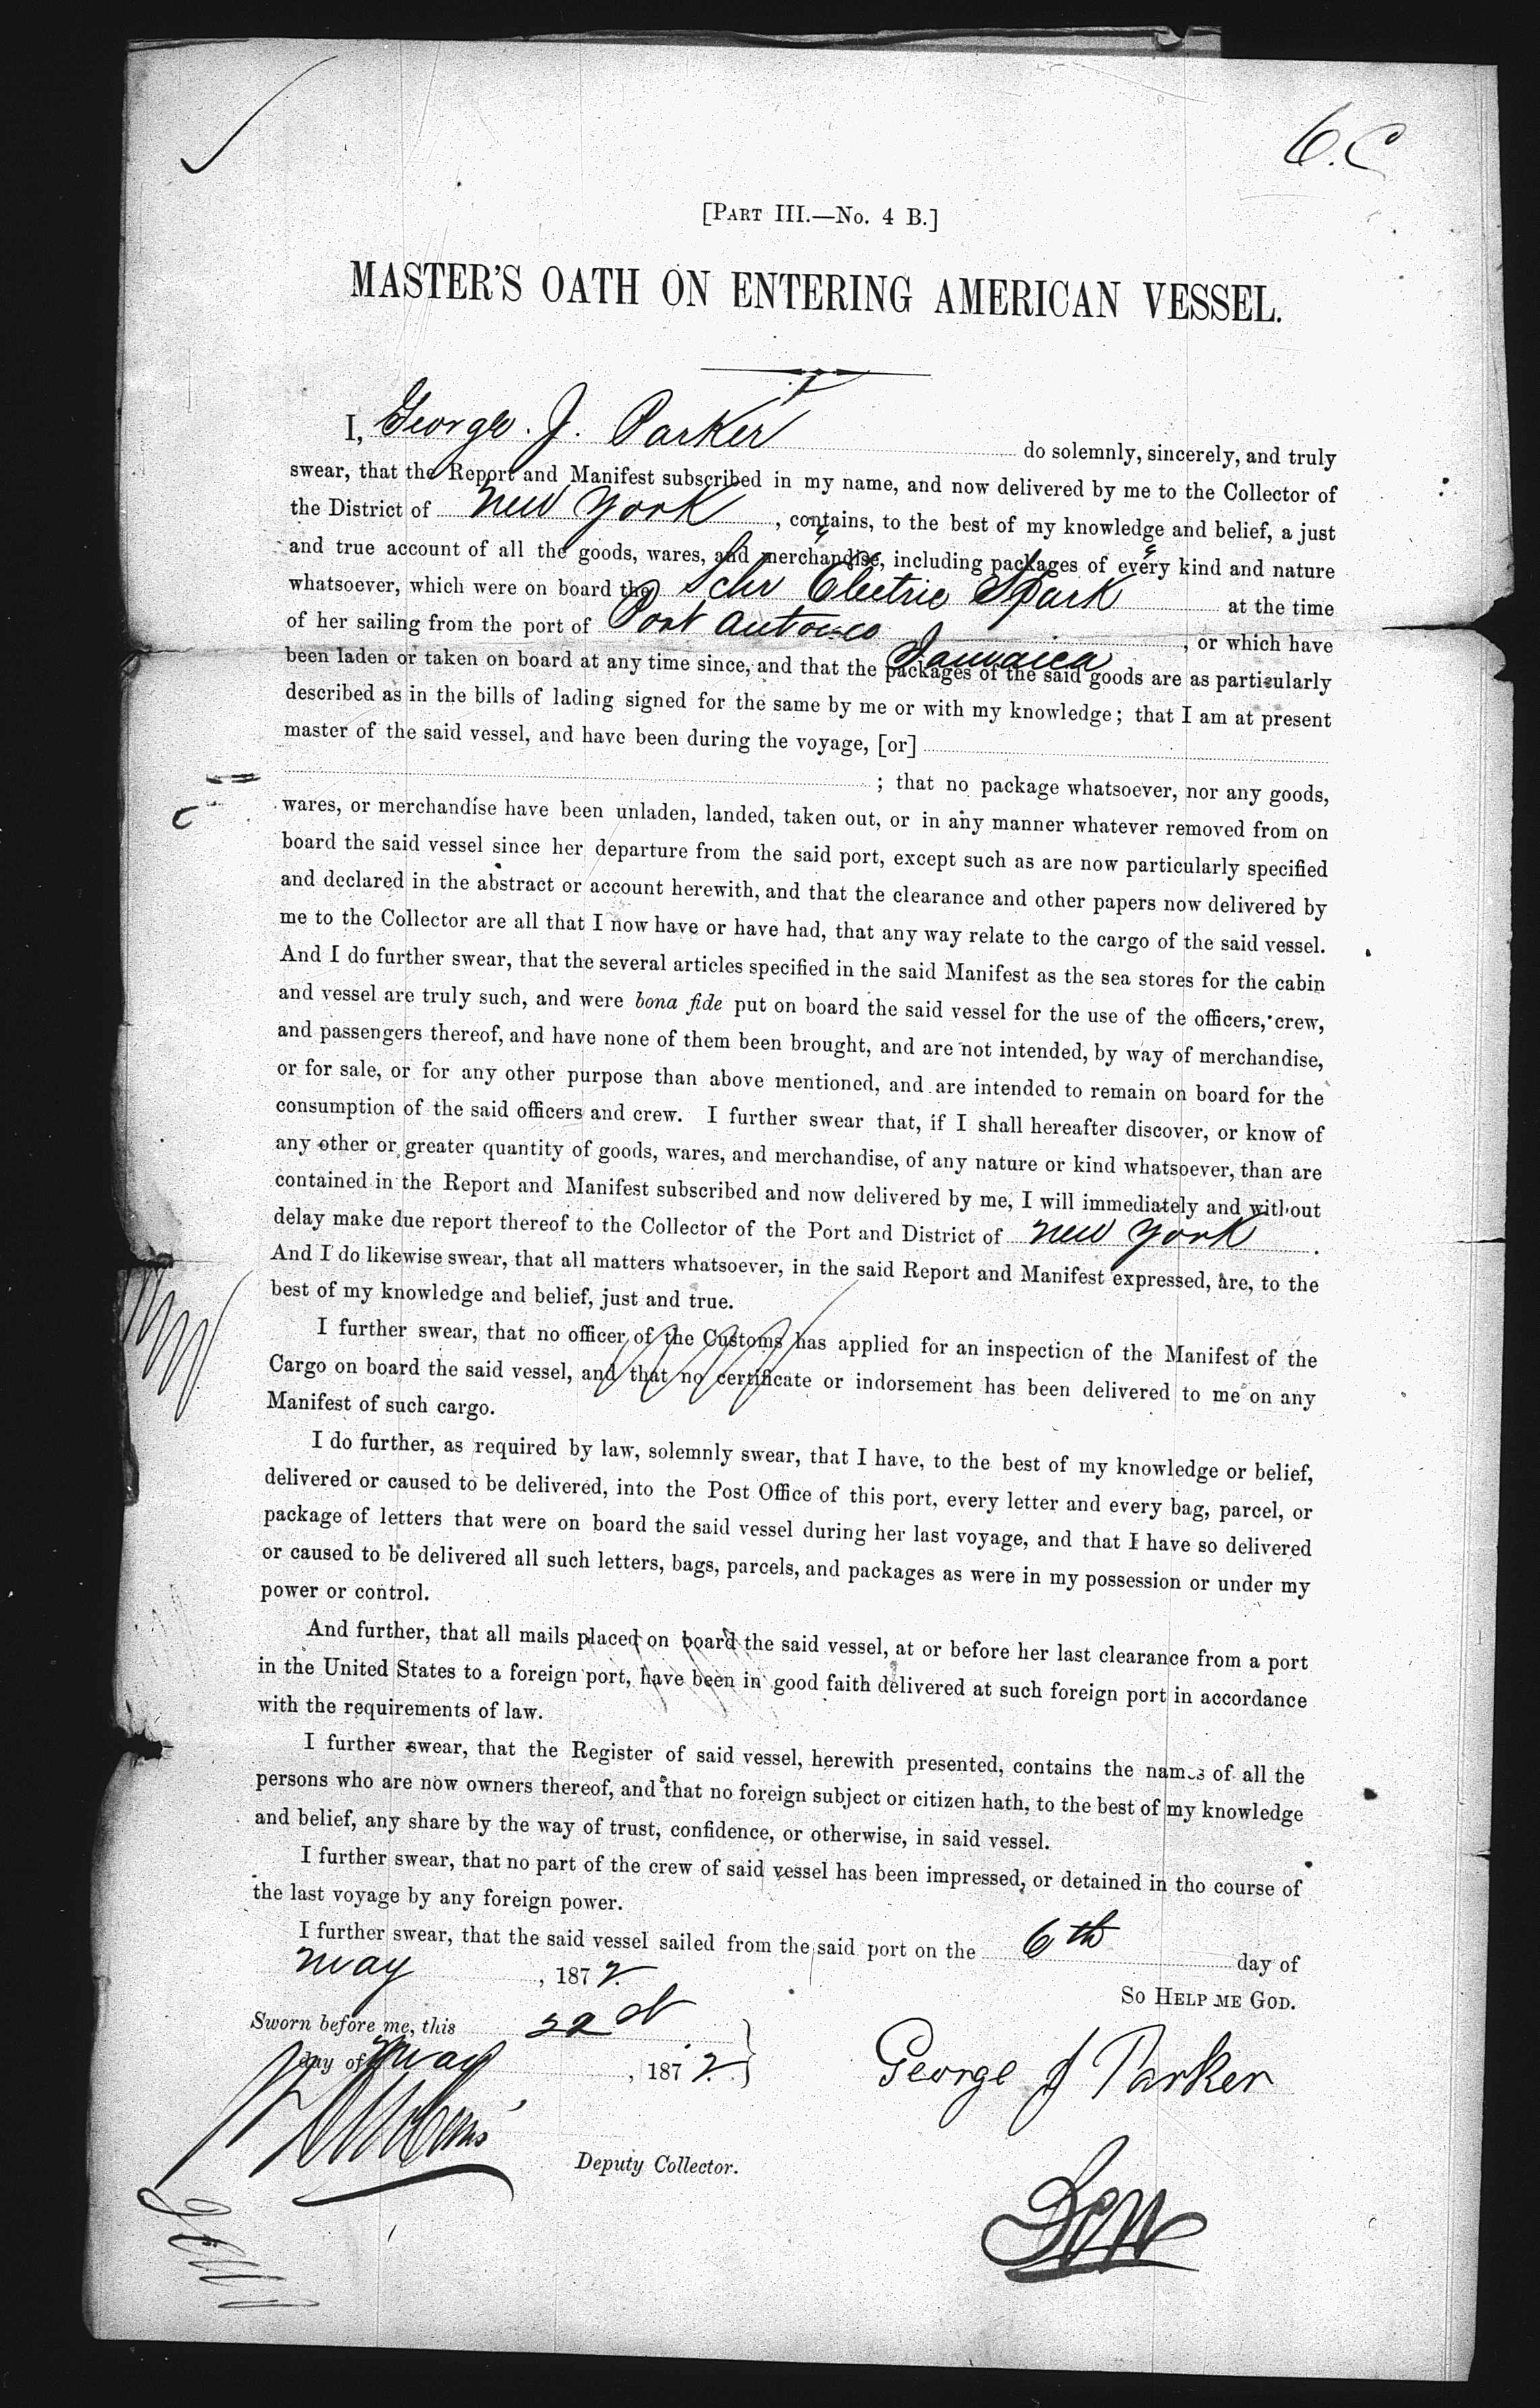 6.C
[PART III.—No. 4 B.]
MASTER'S OATH ON ENTERING AMERICAN VESSEL.
I, George. J. Parker do solemnly, sincerely, and truly
swear, that the Report and Manifest subscribed in my name, and now delivered by me to the Collector of
the District of New York, contains, to the best of my knowledge and belief, a just
and true account of all the goods, wares, and merchandise, including packages of every kind and nature
whatsoever, which were on board the Schr Electric Spark at the time
of her sailing from the port of Port Antonio Jamaica, or which have
been laden or taken on board at any time since, and that the packages of the said goods are as particularly
described as in the bills of lading signed for the same by me or with my knowledge; that I am at present
master of the said vessel, and have been during the voyage, [or]
; that no package whatsoever, nor any goods,
wares, or merchandise have been unladen, landed, taken out, or in any manner whatever removed from on
board the said vessel since her departure from the said port, except such as are now particularly specified
and declared in the abstract or account herewith, and that the clearance and other papers now delivered by
me to the Collector are all that I now have or have had, that any way relate to the cargo of the said vessel.
And I do further swear, that the several articles specified in the said Manifest as the sea stores for the cabin
and vessel are truly such, and were bona fide put on board the said vessel for the use of the officers, crew,
and passengers thereof, and have none of them been brought, and are not intended, by way of merchandise,
or for sale, or for any other purpose than above mentioned, and are intended to remain on board for the
consumption of the said officers and crew. I further swear that, if I shall hereafter discover, or know of
any other or greater quantity of goods, wares, and merchandise, of any nature or kind whatsoever, than are
contained in the Report and Manifest subscribed and now delivered by me, I will immediately and without
delay make due report thereof to the Collector of the Port and District of New York.
And I do likewise swear, that all matters whatsoever, in the said Report and Manifest expressed, are, to the
best of my knowledge and belief, just and true.
I further swear, that no officer of the Customs has applied for an inspection of the Manifest of the
Cargo on board the said vessel, and that no certificate or indorsement has been delivered to me on any
Manifest of such cargo.
I do further, as required by law, solemnly swear, that I have, to the best of my knowledge or belief,
delivered or caused to be delivered, into the Post Office of this port, every letter and every bag, parcel, or
package of letters that were on board the said vessel during her last voyage, and that I have so delivered
or caused to be delivered all such letters, bags, parcels, and packages as were in my possession or under my
power or control.
And further, that all mails placed on board the said vessel, at or before her last clearance from a port
in the United States to a foreign port, have been in good faith delivered at such foreign port in accordance
with the requirements of law.
I further swear, that the Register of said vessel, herewith presented, contains the names of all the
persons who are now owners thereof, and that no foreign subject or citizen hath, to the best of my knowledge
and belief, any share by the way of trust, confidence, or otherwise, in said vessel.
I further swear, that no part of the crew of said vessel has been impressed, or detained in tho course of
the last voyage by any foreign power.
I further swear, that the said vessel sailed from the said port on the 6th day of
May, 1872.
SO HELP ME GOD.
Sworn before me, this 22d
day of May, 1872.
George J Parker
Deputy Collector.